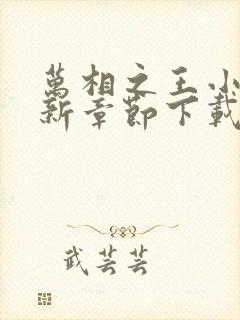 萬相之王小
新章節下載
武芸芸